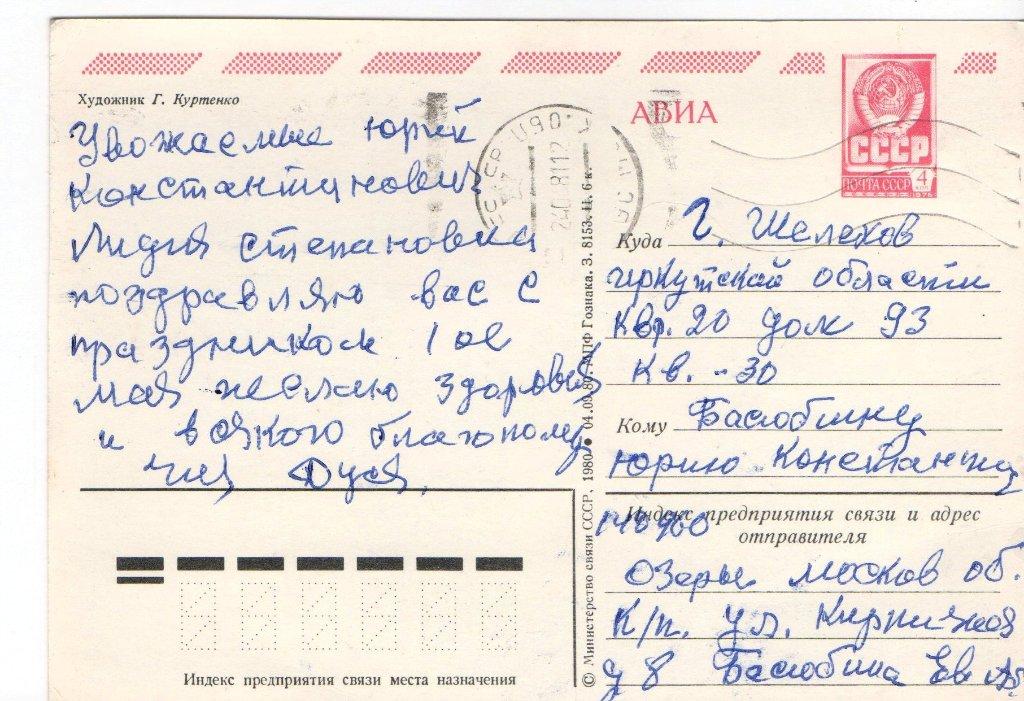 Художник Г. Куртенко
Уважаемые Юрий
Константинович
Лидия Степановна
поздравляю вас с
праздником 1 ое
мая желаю здоровья
и всякого благополу
чия Дуся.
АВИА
СССР
ПОЧТА СССР 4
Куда г. Шелехов
иркутской области
Квр. 20 дом 93
Кв. - 30
Кому Баслобину
Юрию Константину
Индекс предприятия связи и адрес
отправителя
140960
Озеры москов об.
К/п. ул. Кирпичная
д 8 Баслобина Ев
Индекс предприятия связи места назначения
© Министерство связи СССР, 1980 ● 04.09.80. МПФ Гознака. З. 8153. Ц. 6 к.